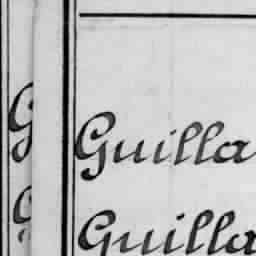 Guilla
Guilla